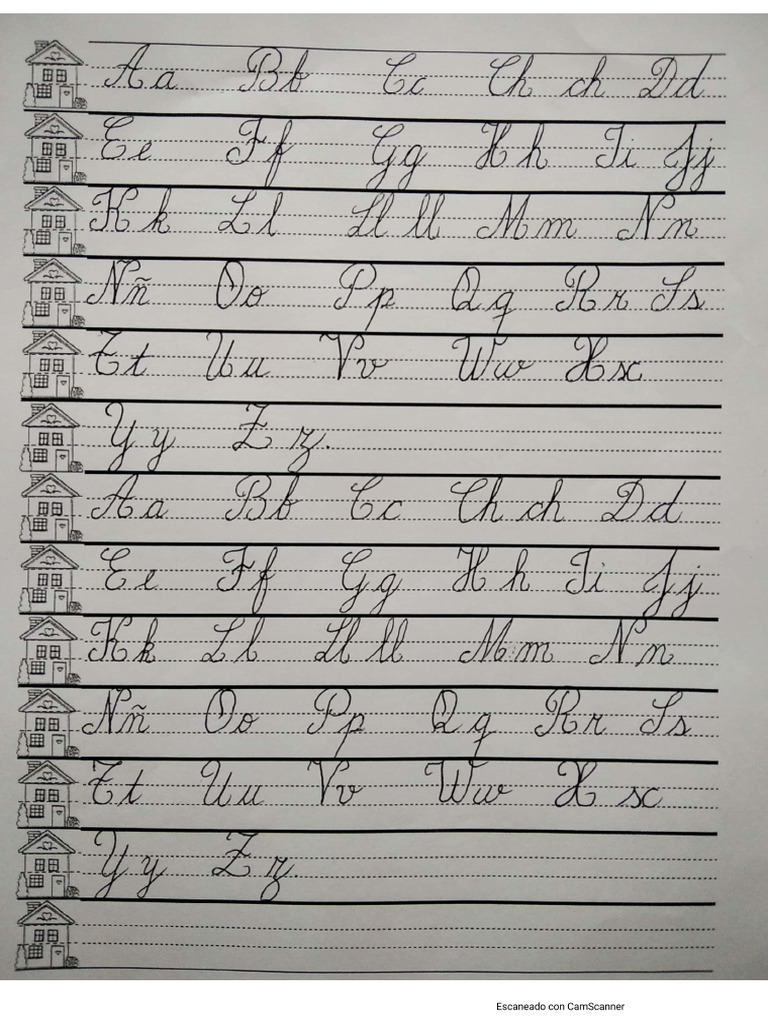 Aa Bb Cc Ch ch Dd
Ee Ff Gg Hh Ii Jj
Kk Ll Ll ll Mm Nn
Ññ Oo Pp Qq Rr Ss
Tt Uu Vv Ww Xx
Yy Zz.
Aa Bb Cc Ch ch Dd
Ee Ff Gg Hh Ii Jj
Kk Ll Ll ll Mm Nn
Ññ Oo Pp Qq Rr Ss
Tt Uu Vv Ww Xx
Yy Zz.
Escaneado con CamScanner